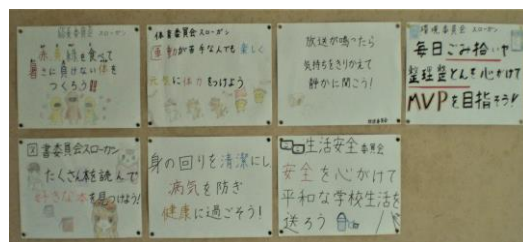 給食委員会スローガン
赤黄緑を食べて
暑さに負けない体を
つくろう!!
体育委員会 スローガン
運動が苦手なんでも楽しく
元気に体力をつけよう
放送が鳴ったら
気持ちをきりかえて
静かに聞こう!
環境委員会 スローガン
毎日ごみ拾いや
整理整とんを心がけて
MVPを目指そう!!
図書委員会スローガン
たくさん本を読んで
好きな本を見つけよう!
身の回りを清潔にし
病気を防ぎ
健康に過ごそう!
生活安全委員会
安全を心がけて
平和な学校生活を
送ろう